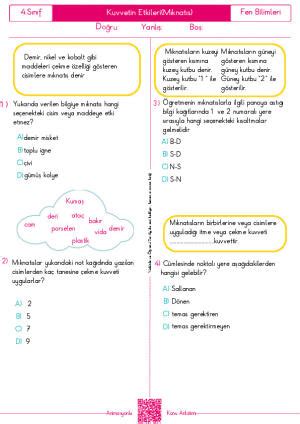 4.Sınıf
Kuvvetin Etkileri(Mıknatıs)
Fen Bilimleri
Doğru
Yanlış
Boş
Demir, nikel ve kobalt gibi
maddeleri çekme özelliği gösteren
cisimlere mıknatıs denir
1 )
Yukarıda verilen bilgiye mıknatıs hangi
seçenekteki cisim veya maddeye etki
etmez?
A)demir misket
B)toplu iğne
C)çivi
D)gümüş kolye
Kumaş
deri
ataç
bakır
cam
porselen
vida
demir
plastik
2)
Mıknatıslar yukarıdaki not kağıdında yazılan
cisimlerden kaç tanesine çekme kuvveti
uygularlar?
A) 2
B) 5
C) 7
D) 9
Mıknatısların kuzeyi
gösteren kısmına
kuzey kutbu denir.
Kuzey kutbu "1 " ile
gösterilir.
Mıknatısların güneyi
gösteren kısmına
güney kutbu denir.
Güney kutbu "2" ile
gösterilir.
3)
Öğretmenin mıknatıslarla ilgili panoya astığı
bilgi kağıtlarında 1 ve 2 numaralı yere
sırasıyla hangi seçenekteki kısaltmalar
gelmelidir
A) B-D
B) S-D
C) N-S
D) S-N
Mıknatısların birbirlerine veya cisimlere
uyguladığı itme veya çekme kuvveti
........................kuvvettir.
4)
Cümlesinde noktalı yere aşağıdakilerden
hangisi gelebilir?
A) Sallanan
B) Dönen
C) temas gerektiren
D) temas gerektirmeyen